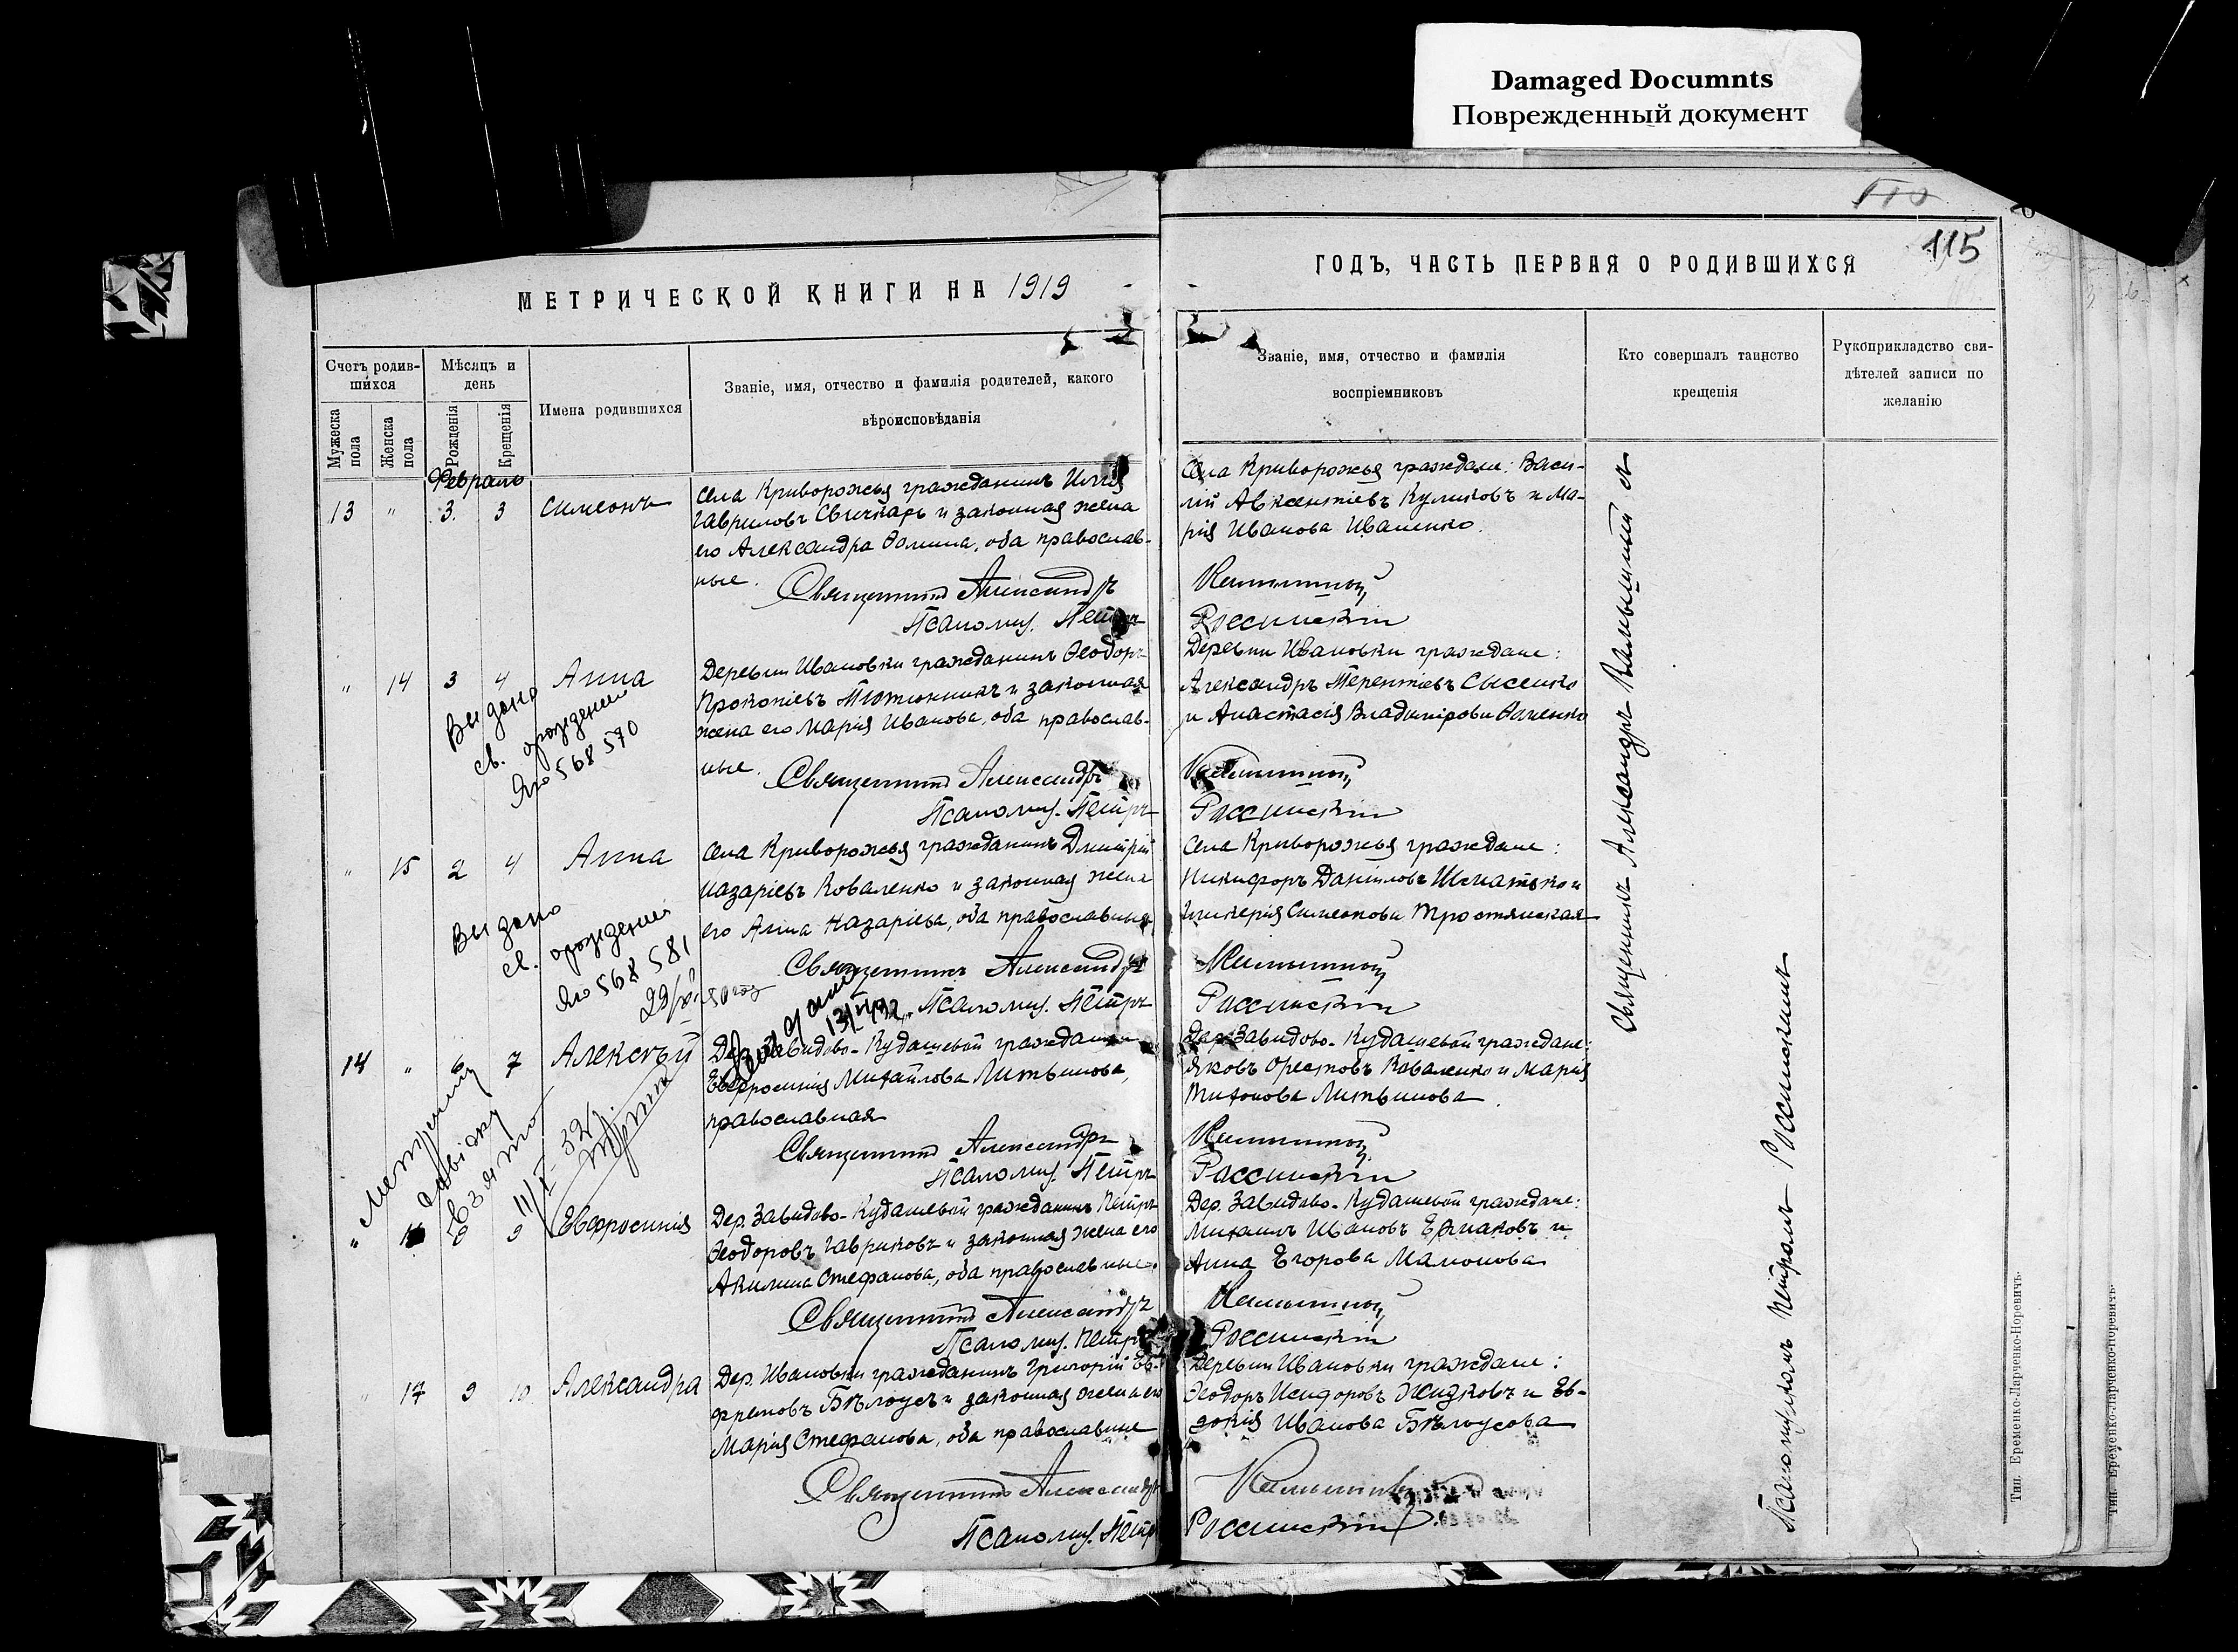 Damaged Documnts
Поврежденный документ
115
МЕТРИЧЕСКОЙ КНИГИ НА 1919
ГОДЪ, ЧАСТЬ ПЕРВАЯ О РОДИВШИХСЯ
Счетъ родив-
шихся
Мужеска пола
Женска пола
Мѣсяцъ и
день
Рожденія
Крещенія
Имена родившихся
Званіе, имя, отчество и фамилія родителей, какого
вѣроисповѣданія
Званіе, имя, отчество и фамилія
воспріемниковъ
Кто совершалъ таинство
крещенія
Рукоприкладство сви-
дѣтелей записи по
желанію
Февраль
13 " 3. 3 Симеонъ
Села Криворожья гражданинъ Илія
Гавриловъ Свичкарь и законная жена
его Александра Ѳомина, оба православ-
ные.
Священникъ Александръ
Псаломщ. Петръ
Села Криворожья граждане: Васи-
лій Авксентіевъ Куликовъ и Ма-
рія Иванова Иваненко.
Россинскій
" 14 3 4 Анна
Выдано
св. орождении
Яю 568570
Деревни Ивановки гражданинъ Ѳеодоръ
Прокопіевъ Тютюнникъ и законная
жена его Марія Иванова, оба православ-
ные.
Священникъ Александръ
Псаломщ. Петръ
Деревни Ивановки граждане:
Александръ Терентіевъ Сысенко
и Анастасія Владимірова
Россинскій
" 15 2 4 Анна
Выдано
св. орождении
Яю 568581
50 год
Села Криворожья гражданинъ Дмитрій
Назаріевъ Коваленко и законная жена
его Анна Назаріева, оба православные
Священникъ Александръ
Псаломщ. Петръ
Села Криворожья граждане:
Никифоръ Даніиловъ Шматько и
Гликерія Симеонова Тростянская
Россинскій
14 " 6 7 Алексѣй
Метричну
довідку
взято
11/І 32 г.
Дер. Завидово-Кудашевой гражданка
Евфросинія Михайлова Литвинова,
православная
Священникъ Александръ
Псаломщ. Петръ
Дер. Завидово-Кудашевой граждане:
Яковъ Орестовъ Коваленко и Марія
Тихонова Литвинова.
Россинскій
" 16 8 9 Евфросинія
Дер. Завидово-Кудашевой гражданинъ Петръ
Ѳеодоровъ Гавриковъ и законная жена его
Акилина Стефанова, оба православные.
Священникъ Александръ
Псаломщ. Петръ
Дер. Завидово-Кудашевой граждане:
Михаилъ Ивановъ Ермаковъ и
Анна Егорова Мамонова
Россинскій
" 17 9 10. Александра
Дер. Ивановки гражданинъ Григорій Еѳ-
фремовъ Бѣлоусъ и законная жена его
Марія Стефанова, оба православные
Священникъ Александръ
Псаломщ. Петръ
Деревни Ивановки граждане:
Ѳеодоръ Исидоровъ Жидковъ и Ев-
докія Иванова Бѣлоусова
Россинскій
Священникъ Александръ
Псаломщикомъ Петромъ Россинскимъ
Тип. Еременко-Ларченко-Норевичъ.